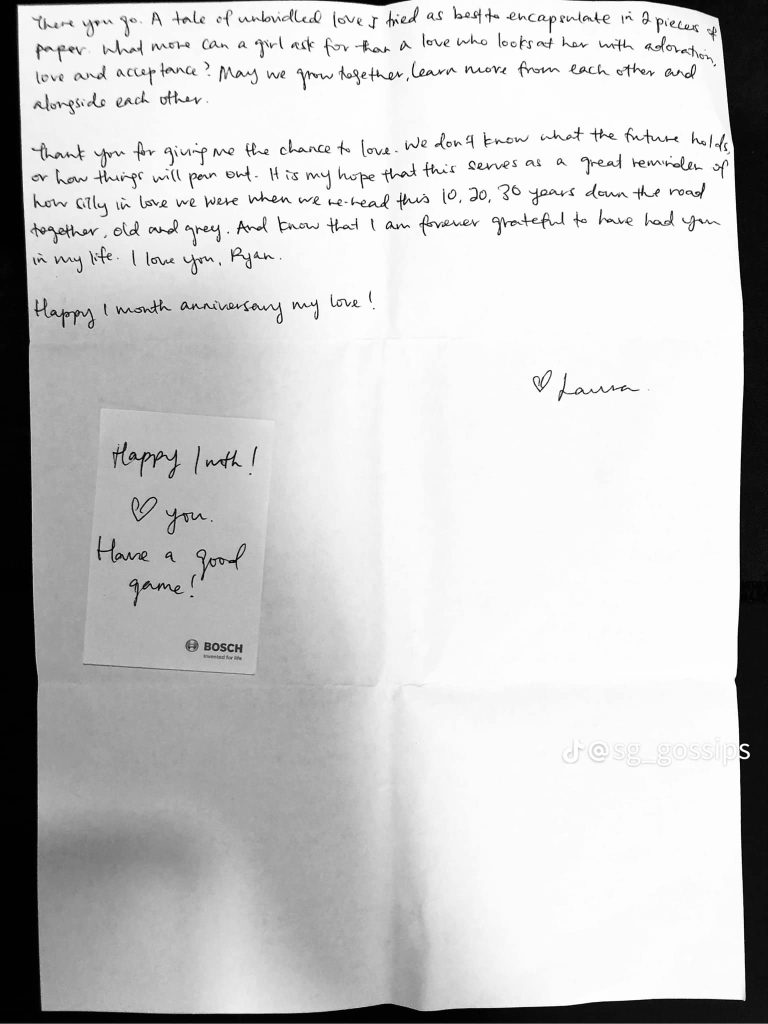 There you go. A tale of unbridled love I tried as best to encapsulate in 2 pieces of
paper. What more can a girl ask for than a love who looks at her with adoration,
love and acceptance? May we grow together, learn more from each other and
alongside each other.
Thank you for giving me the chance to love. We don't know what the future holds,
or how things will pan out. It is my hope that this serves as a great reminder of
how silly in love we were when we re-read this 10, 20, 30 years down the road
together, old and grey. And know that I am forever grateful to have had you
in my life. I love you, Ryan.
Happy 1 month anniversary my love!
♡ Laura.
Happy 1 mth!
♡ you.
Have a good
game!
BOSCH
Invented for life
@sg_gossips